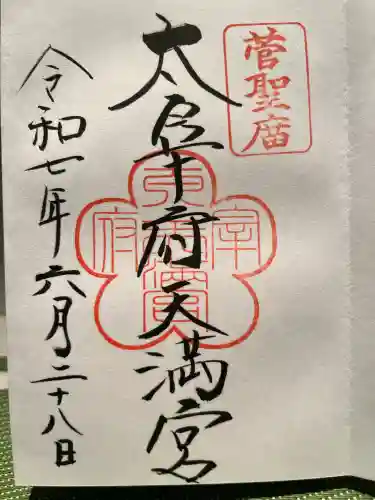 菅聖庿
太宰府天満宮
令和七年六月二十八日